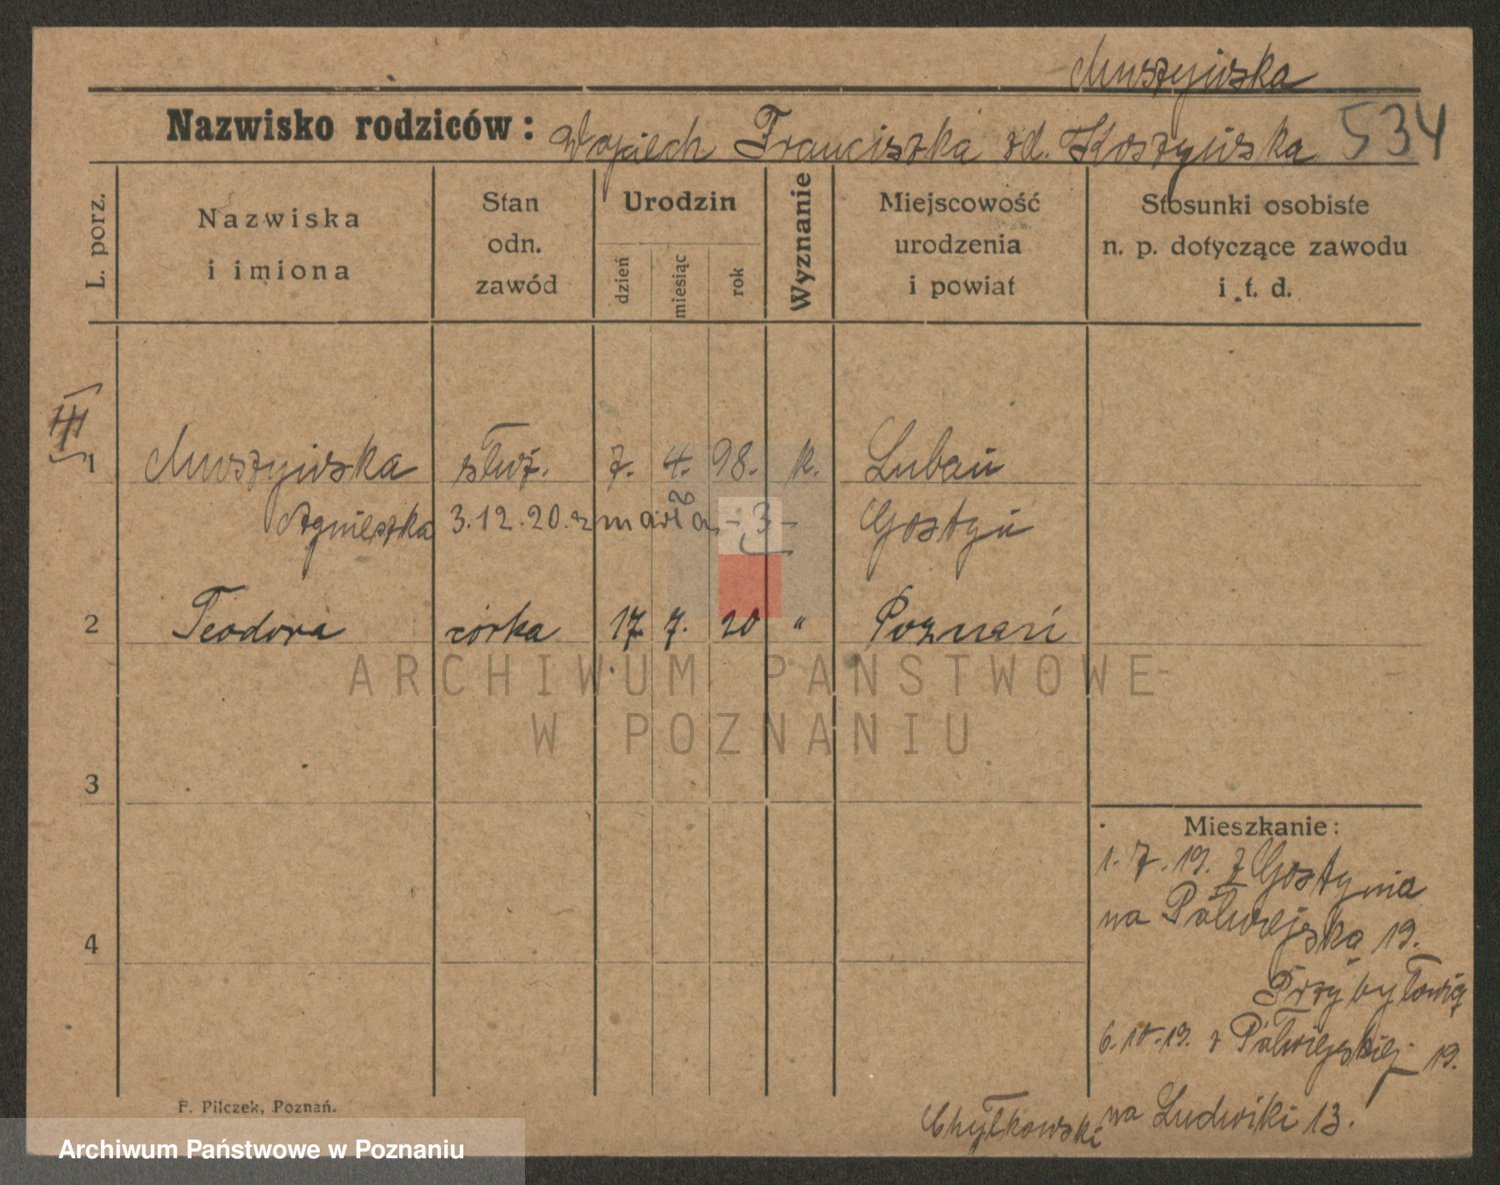 Muszyńska
Nazwisko rodziców: Wojciech Franciszka zd. Koszyńska 534
L. porz.
Nazwiska
i imiona
Stan
odn.
zawód
Urodzin
dzień
miesiąc
rok
Wyznanie
Miejscowość
urodzenia
i powiat
Stosunki osobiste
n. p. dotyczące zawodu
i t. d.
1 Muszyńska służ. 7. 4. 98. k. Lubań
Agnieszka 3.12.20. zmarła -3- Gostyń
2 Teodora córka 17 7. 20 " Poznań
ARCHIWUM PAŃSTWOWE
W POZNANIU
3
4
Mieszkanie:
1.7.19. z Gostynia
na Półwiejską 19.
6.10.19. z Półwiejskiej 19.
Chytkowski na Ludwiki 13.
F. Pilczek, Poznań.
Archiwum Państwowe w Poznaniu